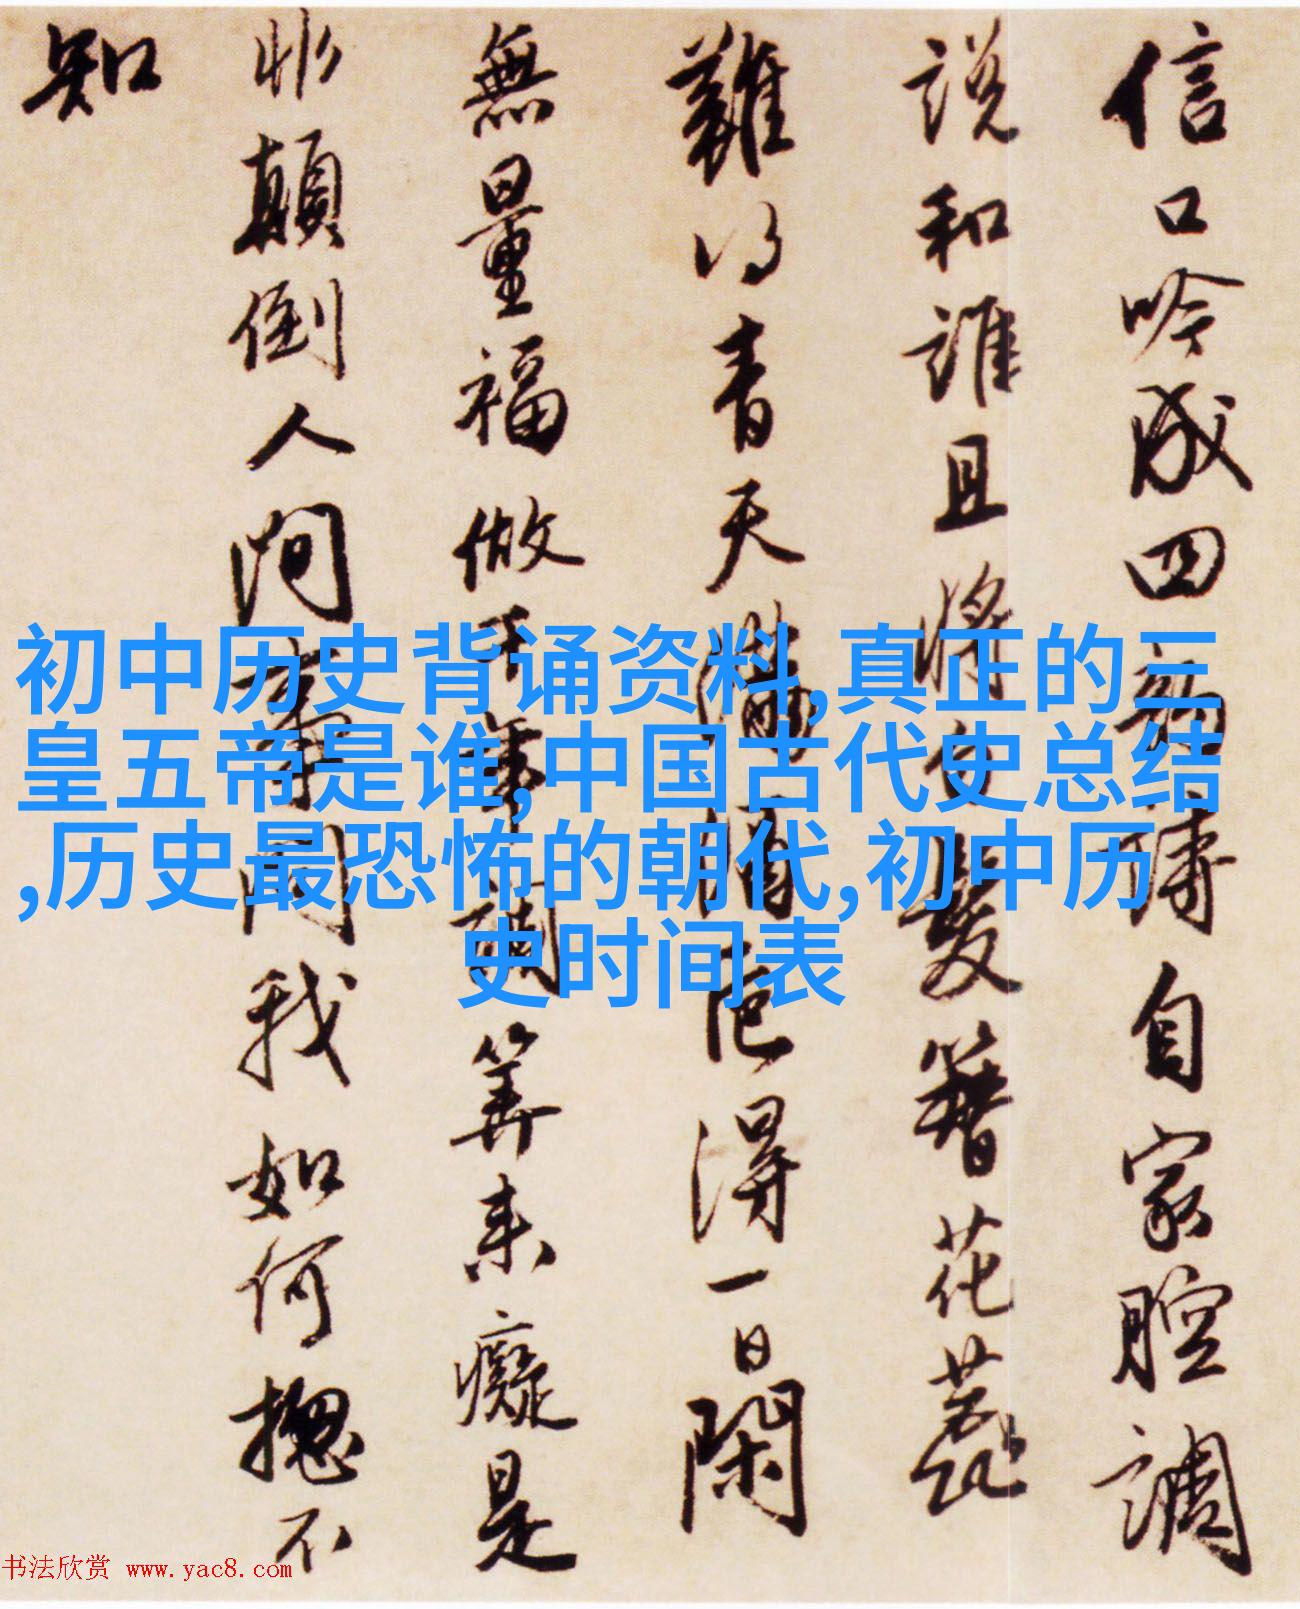 信口吟成四韻詩自家腔調
説和誰且將白髮簪花蕊
難得青天滿酒卮得一日閑
無量福做千年調算来癡是
非顛倒人間事問我如何揔不
知
初中历史背诵资料,真正的三
皇五帝是谁,中国古代史总结
,历史最恐怖的朝代,初中历
史时间表
书法欣赏 www.yac8.com